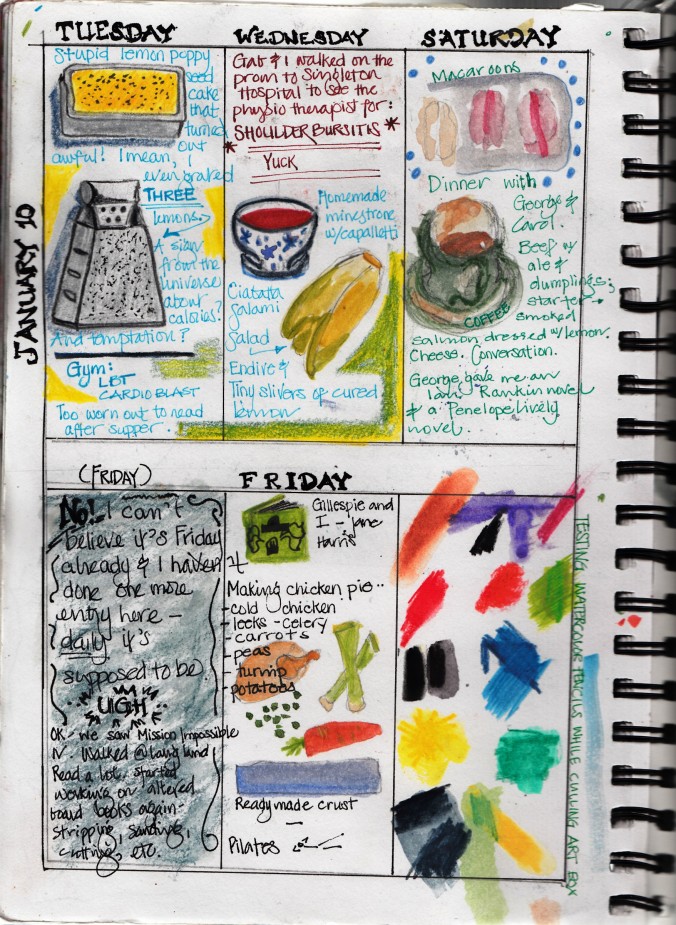 JANUARY 10
TUESDAY
Stupid lemon poppy
seed
cake
that
turned
out
awful! I mean, I
even braked
THREE
lemons.
A sign
from the
universe
about
calories?
And temptation?
Gym:
LBT
CARDIO BLAST
Too worn out to read
after supper.
WEDNESDAY
Gab & I walked on the
prom to Singleton
Hospital to see the
physio therapist for:
* SHOULDER BURSITIS *
YUCK
Homemade
minestrone
w/capalletti
Ciatata
Salami
Salad
Endive &
Tiny slivers of cured
lemon
SATURDAY
Macaroons
Dinner with
George &
Carol.
Beef w/
ale &
dumplings;
starter -
smoked
salmon dressed w/lemon.
Cheese. Conversation.
COFFEE
George gave me an
Ian Rankin novel
& a Penelope Lively
novel.
(FRIDAY)
No! I can't
believe it's Friday
already & I haven't
done one more
entry here –
daily it's
supposed to be.
UGH
OK - we saw Mission Impossible
IV. Walked @ Langland
Read a lot. started
working on altered
board books again-
stripping, sanding,
cutting, etc.
FRIDAY
Gillespie and
I - Jane
Harris
Making chicken pie..
- cold chicken
- leeks - celery
- carrots
- peas
- turnip
potatoes
Readymade crust
–
Pilates
TESTING WATERCOLOR PENCILS WHILE CULLING ART BOX